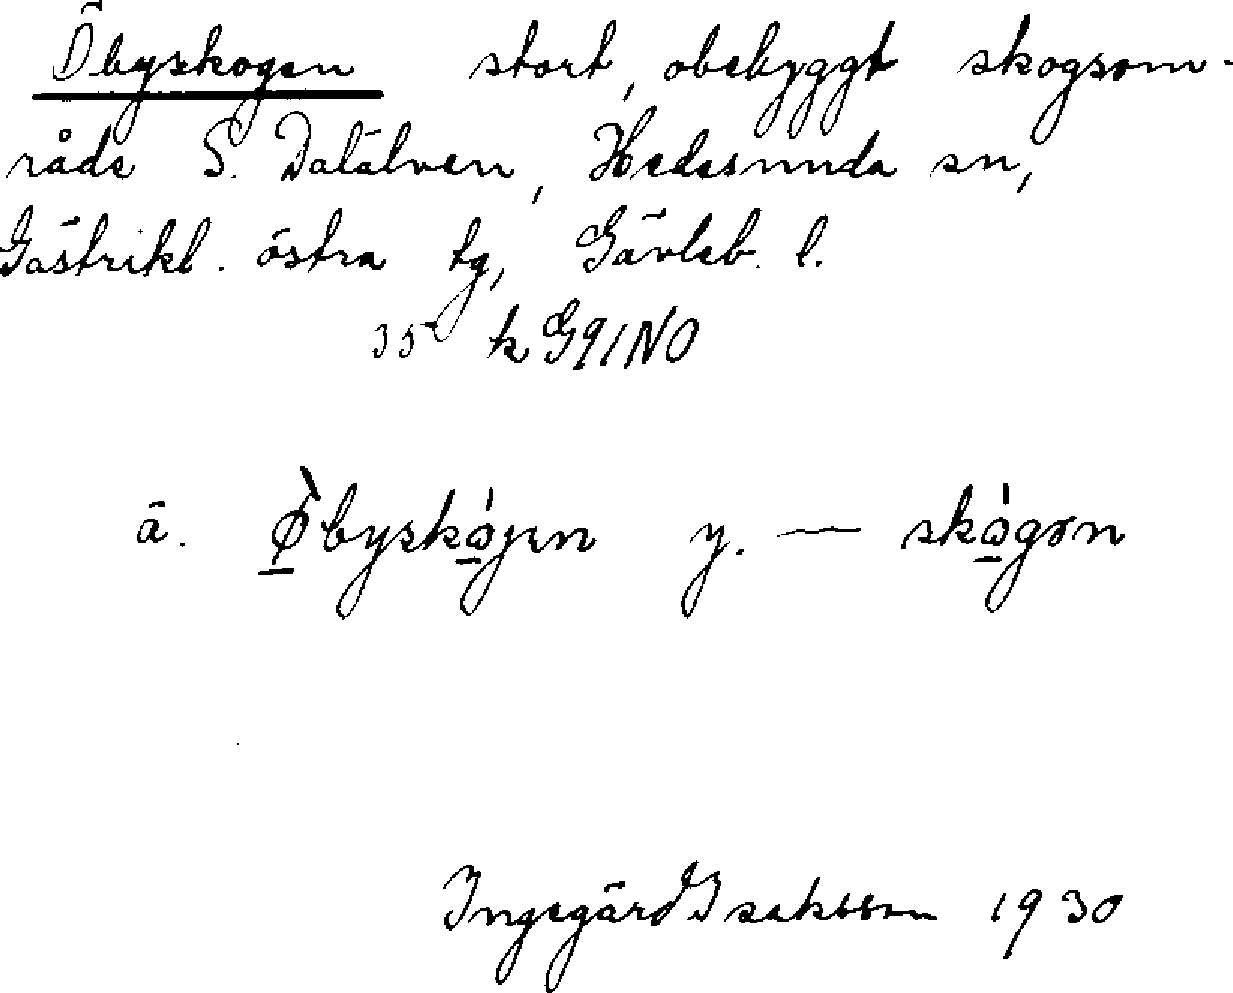 Öbyskogen stort, obebyggt skogsom-
råde S. Dalälven, Hedesunda sn,
Gästrikl. östra tg, Gävleb. l.
35 k G91NO
ä. Ø̀byskǫ́gen y. — skǫ́gøn
Ingegärd Isaksson 1930